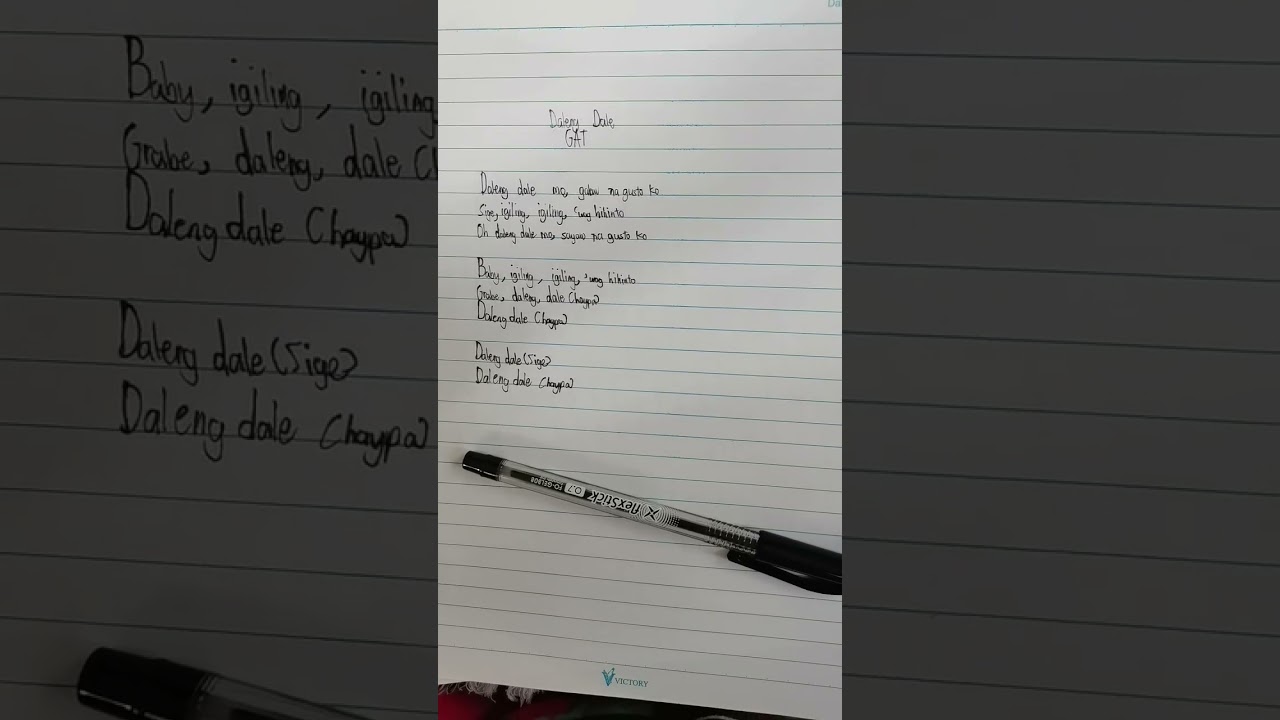 Daleng Dale
GAT
Daleng dale mo, galaw na gusto ko
Sige, igiling, igiling, 'wag hihinto
Oh daleng dale mo, sayaw na gusto ko
Baby, igiling, igiling, 'wag hihinto
Grabe, daleng, dale (haypa)
Daleng dale (haypa)
Daleng dale (Sige)
Daleng dale (haypa)
flexstick 0.7
FO-GELB08
VICTORY
Da